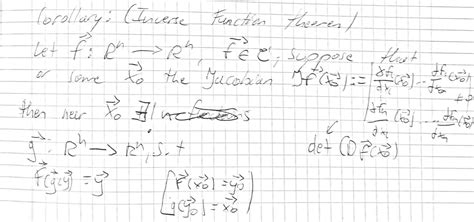 Corollary: (Inverse Function Theorem)
Let f⃗: Rⁿ → Rⁿ, f⃗ ∈ C', suppose that
some x⃗₀ the Jacobian Jf⃗(x⃗₀) := | ∂f₁/∂x₁ (x⃗₀) ... ∂f₁/∂xₙ (x⃗₀) | ≠ 0
| ∂fₙ/∂x₁ (x⃗₀) ... ∂fₙ/∂xₙ (x⃗₀) |
then near x⃗₀ ∃!
det (Df⃗(x⃗₀)
g⃗: Rⁿ → Rⁿ, s.t
f⃗(g⃗(y⃗)) = y⃗ [ f⃗(x⃗₀) = y⃗₀
g⃗(y⃗₀) = x⃗₀ ]